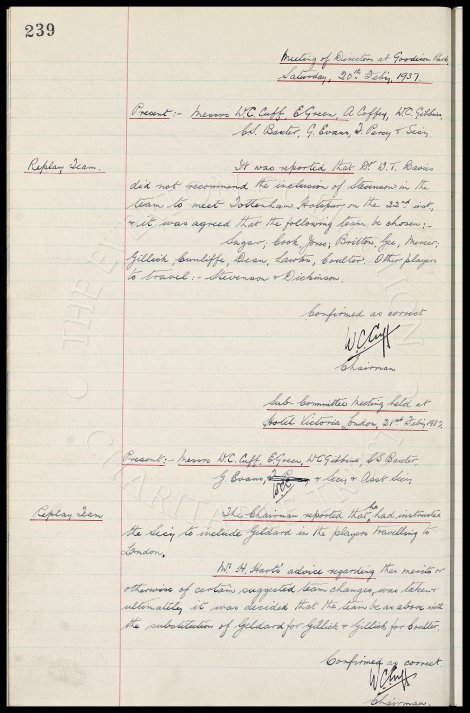 239
Meeting of Directors at Goodison Park,
Saturday, 20th Feb'y, 1937.
Present:- Messrs W.C. Cuff, E. Green, A. Coffey, W.C. Gibbins,
C.S. Baxter, G. Evans, T. Percy & Secy
Replay Team.
It was reported that Dr. W.T. Davies
did not recommend the inclusion of Stevenson in the
team to meet Tottenham Hotspur on the 22nd inst,
& it was agreed that the following team be chosen:-
Sagar, Cook, Jones; Britton, Gee, Mercer;
Gillick, Cunliffe, Dean, Lawton, Coulter. Other players
to travel:- Stevenson & Dickinson.
Confirmed as correct
W C Cuff
Chairman
Sub Committee Meeting held at
Hotel Victoria, London, 21st Feb'y, 1937.
Present:- Messrs W.C. Cuff, E. Green, W.C. Gibbins, C.S. Baxter,
G. Evans, & Secy & Asst Secy.
WCC
Replay Team
The Chairman reported that he had instructed
the Secy to include Geldard in the players travelling to
London.
Mr. H. Hart's advice regarding the merits or
otherwise of certain suggested team changes, was taken &
ultimately it was decided that the team be as above with
the substitution of Geldard for Gillick & Gillick for Coulter.
Confirmed as correct
W C Cuff
Chairman.